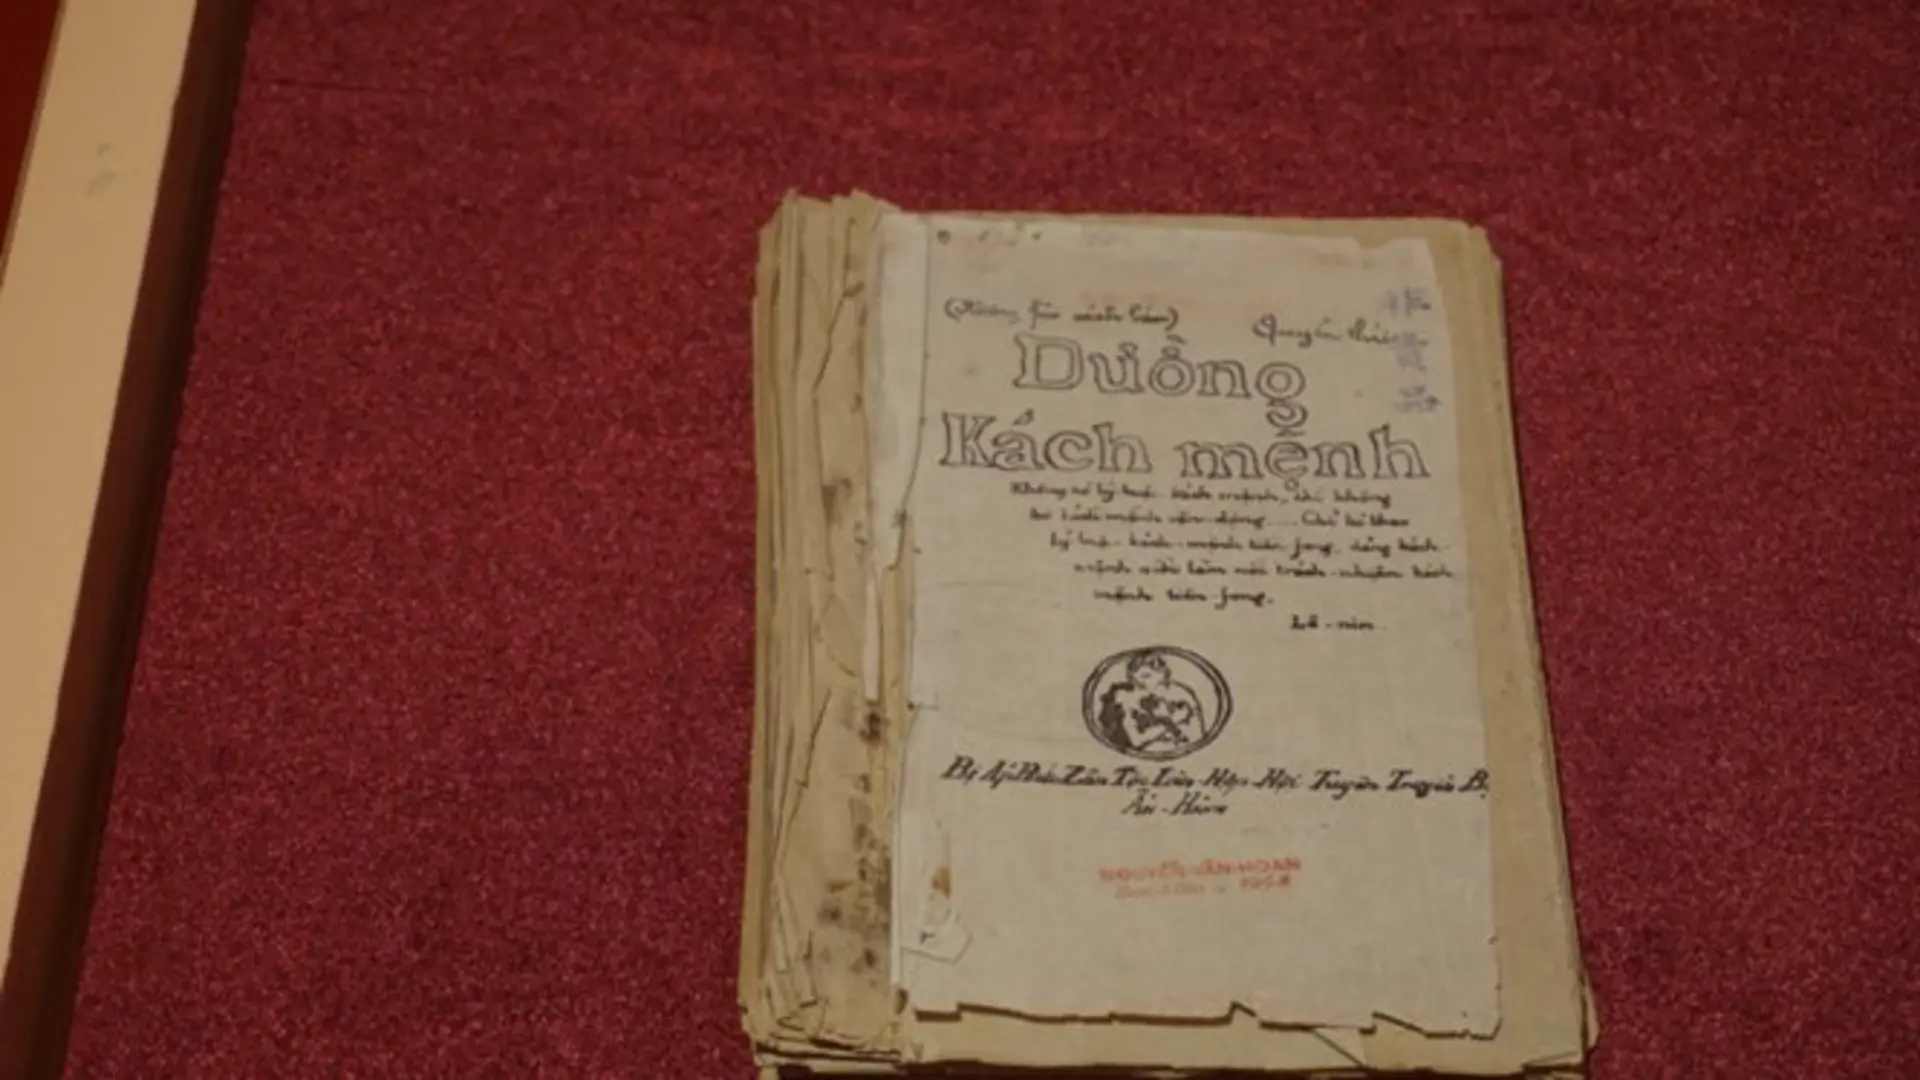 Đường
Kách mệnh
Không có lý luận kách mệnh, thì không
có kách mệnh vận-động.... Chỉ có theo
lý luận kách-mệnh tiền fong, đảng kách-
mệnh mới làm nổi trách-nhiệm kách
mệnh tiền-fong.
Lê-nin.
Bị Áp Bức Dân Tộc Liên-Hợp-Hội Tuyên Truyền Bộ
NGUYỄN-VĂN-HOAN